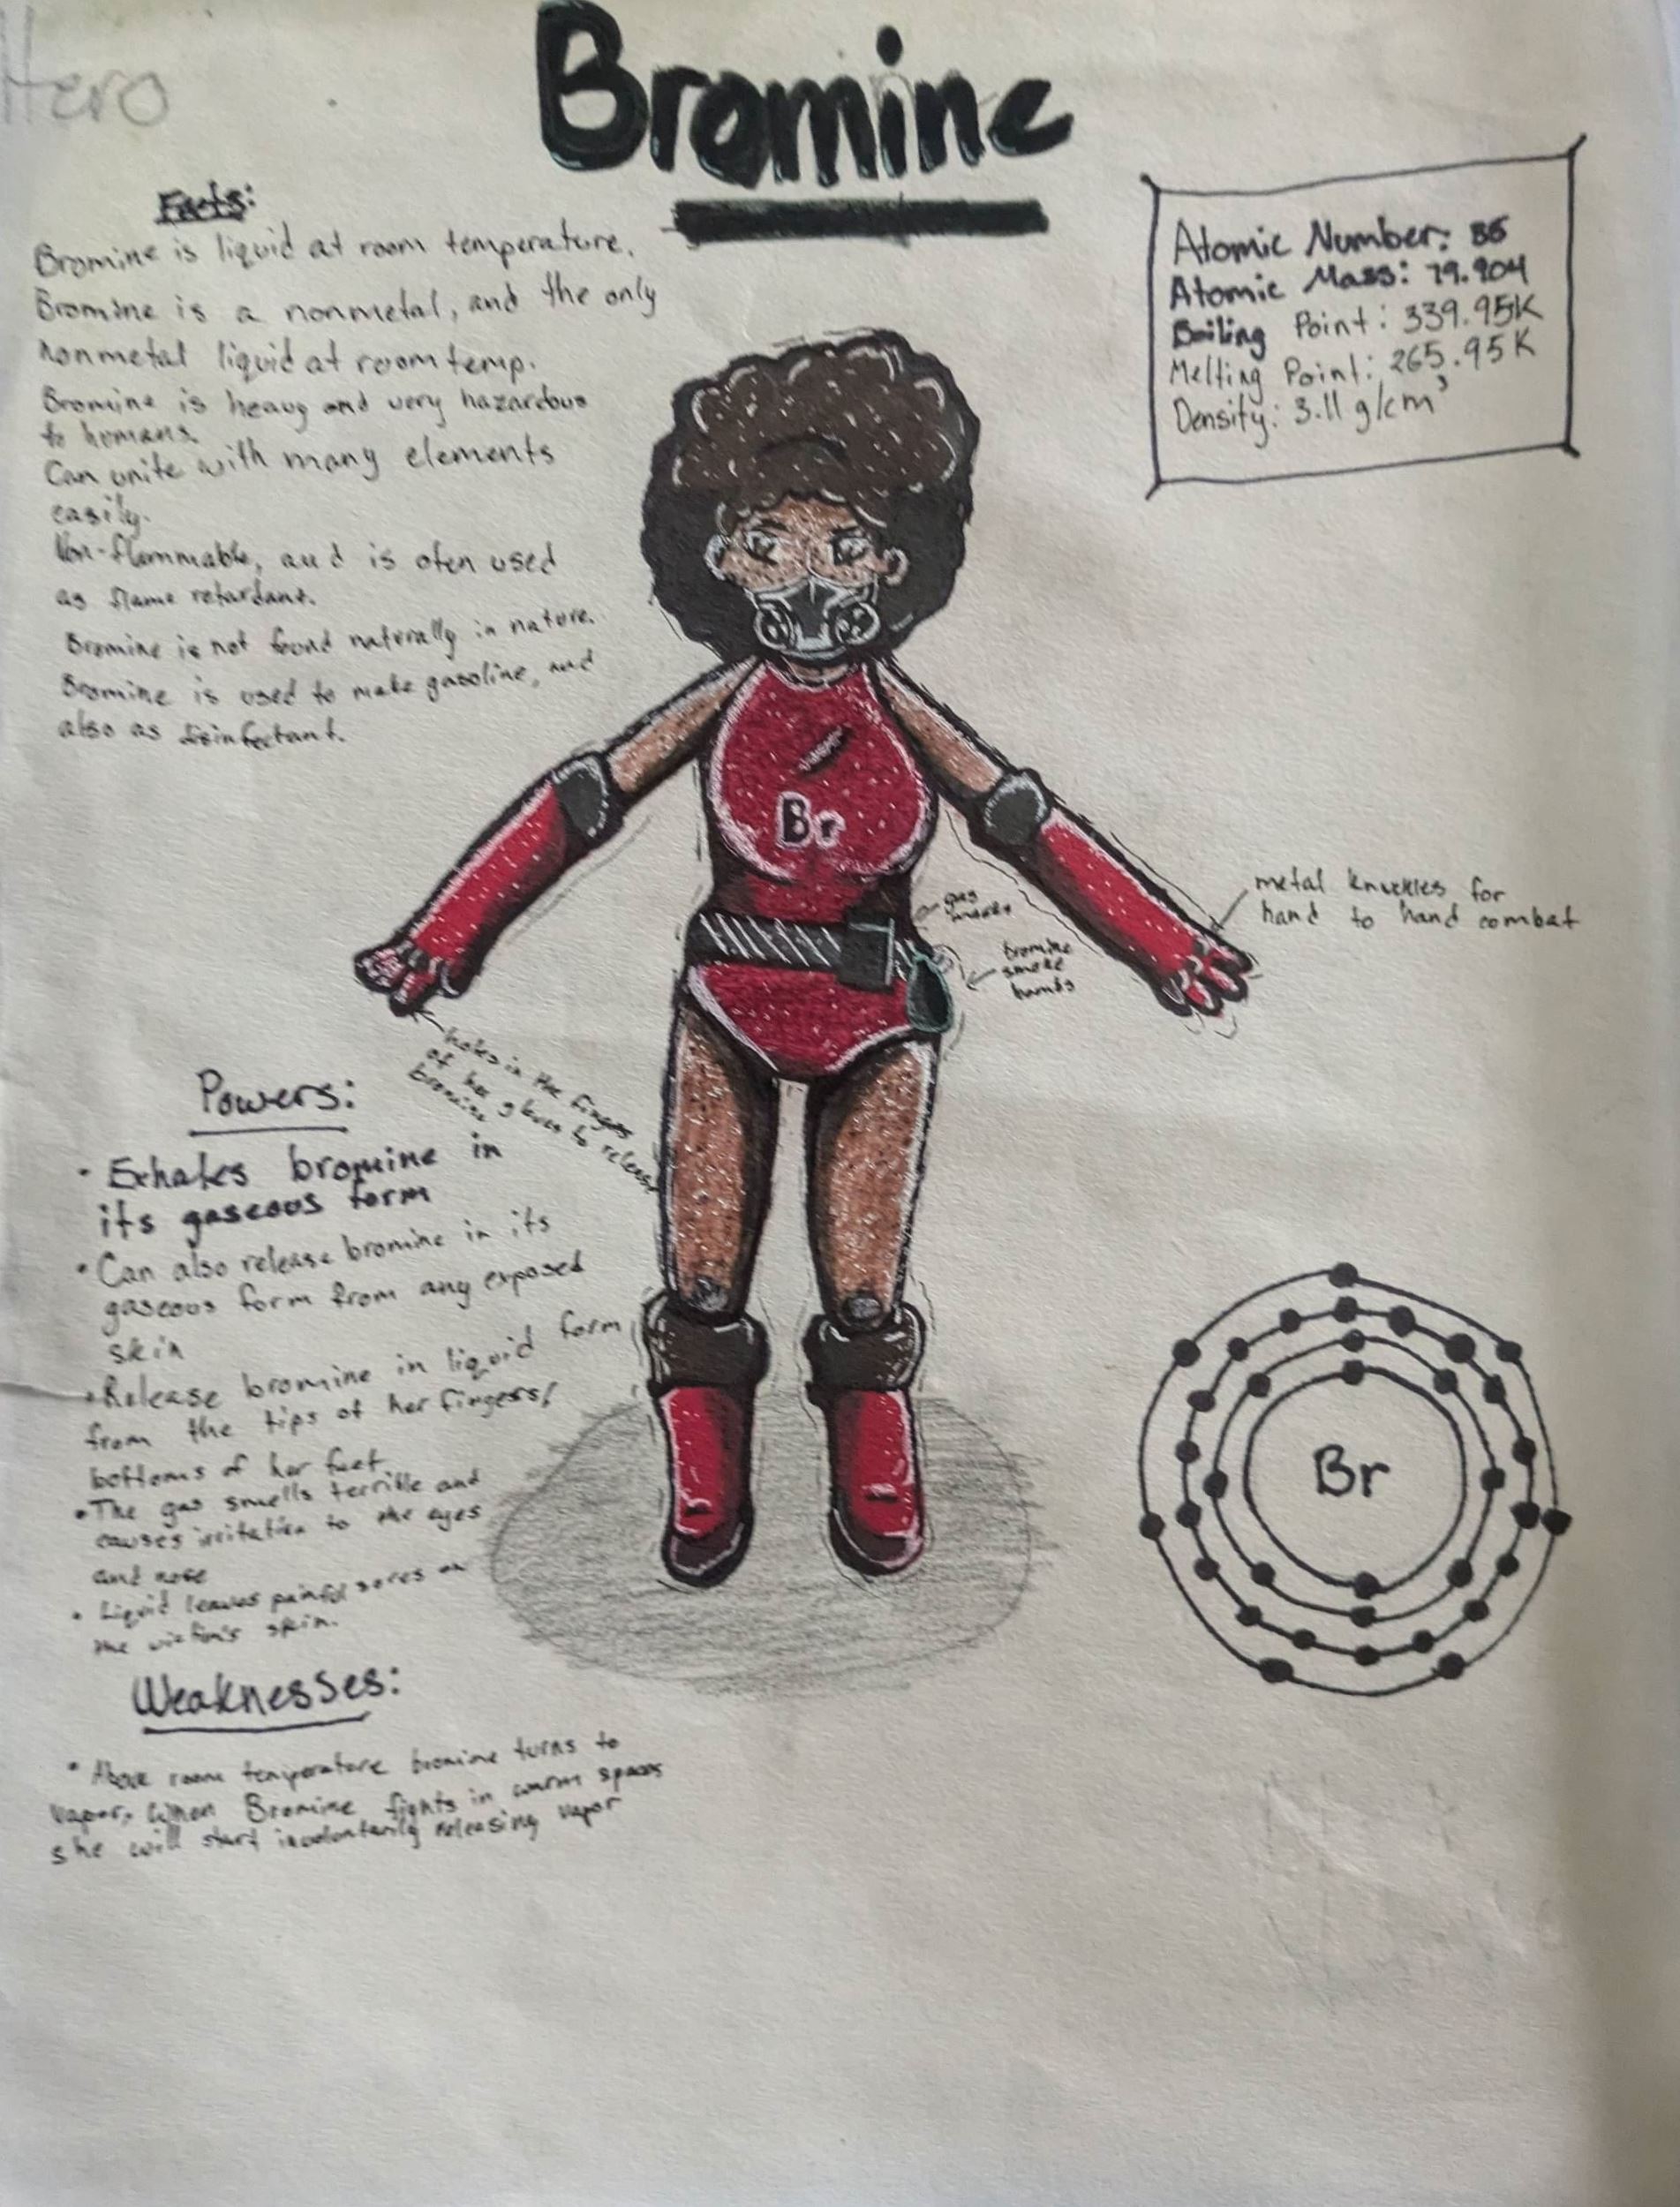 Hero
Bromine
Facts:
Bromine is liquid at room temperature.
Bromine is a nonmetal, and the only
nonmetal liquid at room temp.
Bromine is heavy and very hazardous
to humans.
Can unite with many elements
easily.
Non-flammable, and is often used
as flame retardant.
Bromine is not found naturally in nature.
Bromine is used to make gasoline, and
also as disinfectant.
Atomic Number: 35
Atomic Mass: 79.904
Boiling Point: 339.95K
Melting Point: 265.95K
Density: 3.11 g/cm³
Br
metal knuckles for
hand to hand combat
gas
masks
bromine
smoke
bombs
holes in the fingers
of her gloves to release
bromine
Powers:
• Exhales bromine in
its gaseous form
• Can also release bromine in its
gaseous form from any exposed
skin
• Release bromine in liquid form
from the tips of her fingers/
bottoms of her feet
• The gas smells terrible and
causes irritation to the eyes
and nose
• Liquid leaves painful sores on
the victim's skin.
Weaknesses:
• Above room temperature bromine turns to
vapor, When Bromine fights in warm spaces
she will start involontarily releasing vapor
Br